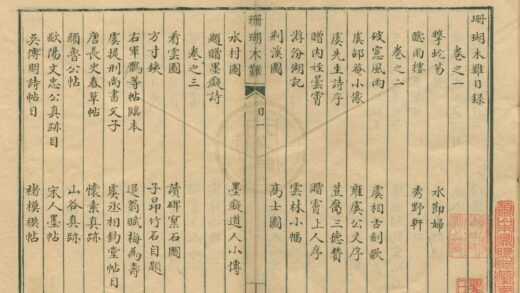 珊瑚木難目録
卷之一
擊蛇笏　水即婦
聽雨樓　秀野軒
卷之二
破窓風雨　虞相古劍歌
虞邵菴小像　雍虞公文序
虞先生詩序　豆腐三德贊
贈内姪曇霄　贈霄上人序
游汾湖記　雲林小幅
荆溪圖　高士圖
珊瑚木難　目一
水村圖　墨癡道人小傳
題贈墨癡詩
卷之三
看雲圖　讀碑窠石圖
方寸鐵　子昂竹石自題
右軍鶻等帖臨本　退翁賦梅為壽
虞提刑尚書父子　虞丞相鈞堂帖目
唐長史春草帖　懷素真跡
顔魯公帖　山谷真跡
歐陽文忠公真跡目　宋人墨帖
吳傅朋詩帖目　褚模禊帖